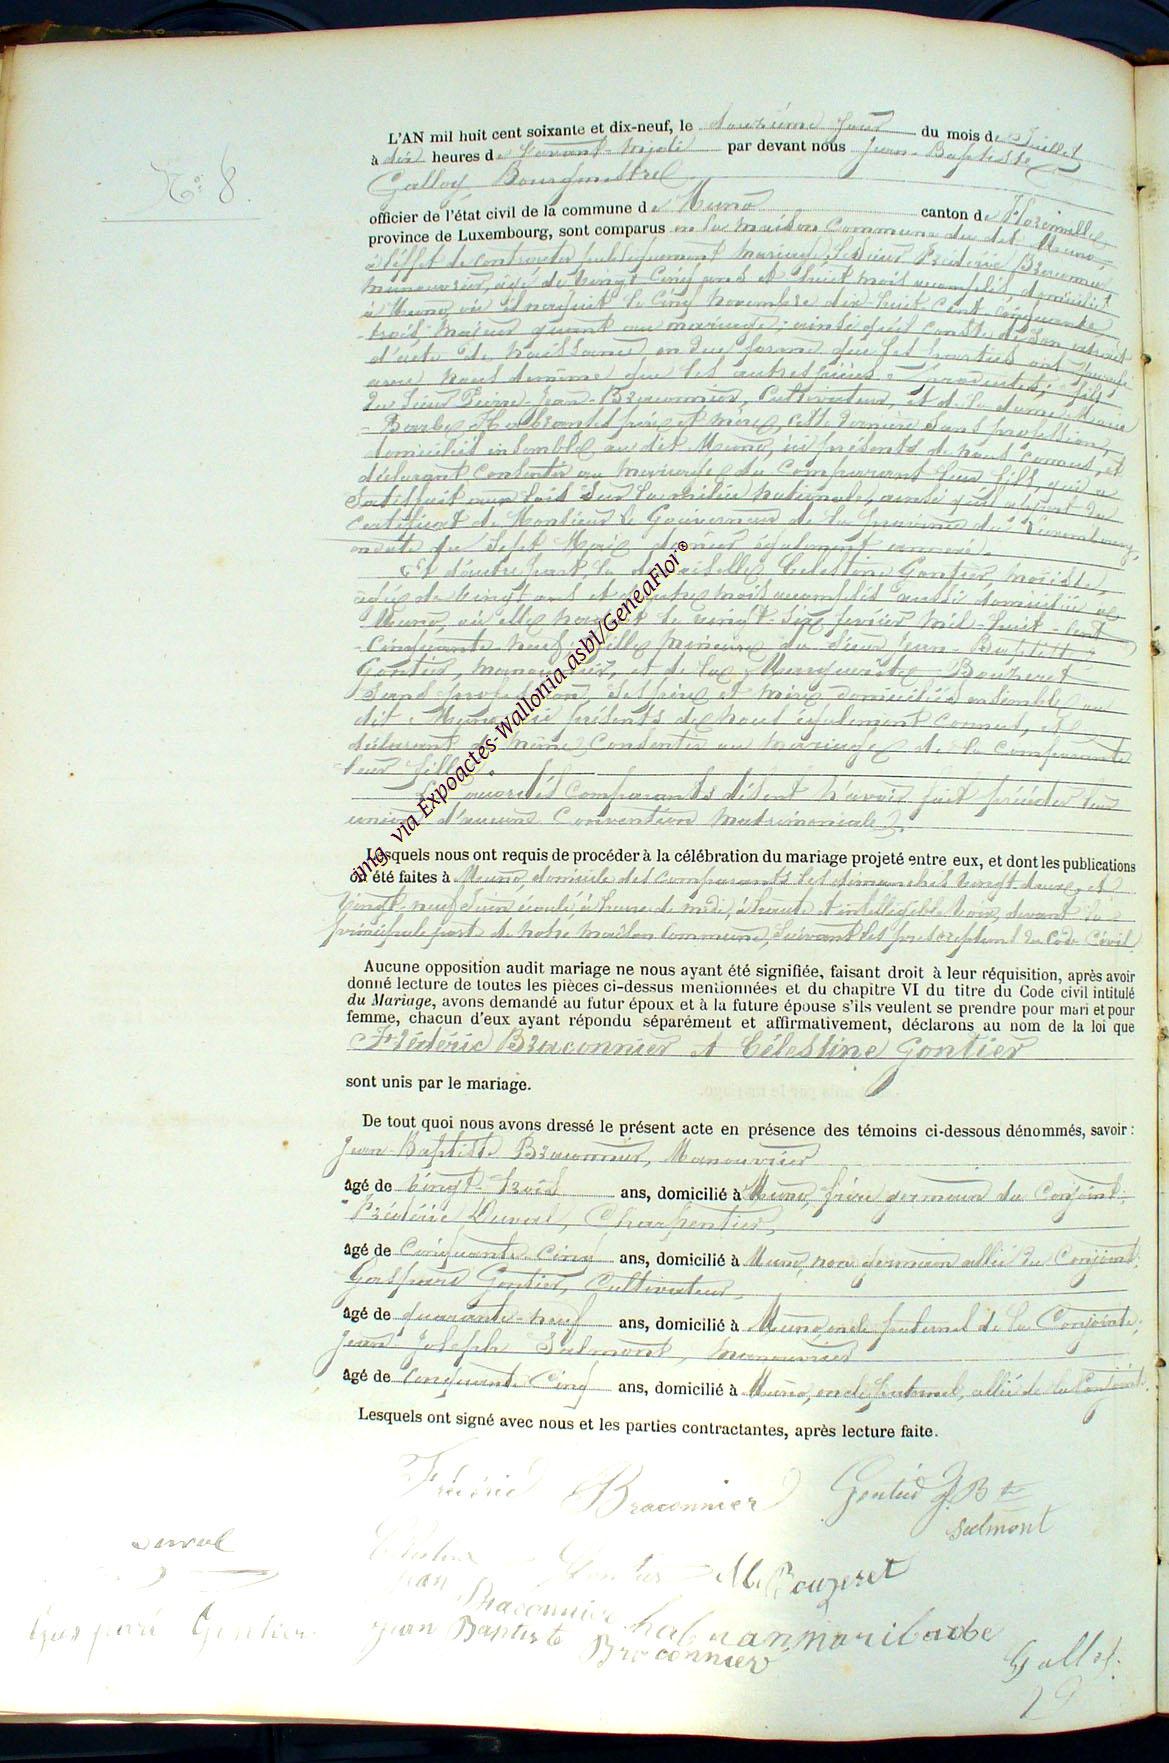 N° 8.
L'AN mil huit cent soixante et dix-neuf, le douzième jour du mois de Juillet
à dix heures de l'avant-midi par devant nous Jean-Baptiste
Galloy Bourgmestre
officier de l'état civil de la commune de Muno canton de Florenville
province de Luxembourg, sont comparus en la maison Commune du dit Muno
à l'effet de contracter mariage, le sieur Frédéric Braconnier
manouvrier, âgé de vingt cinq ans et huit mois accomplis, domicilié
à Muno, où il naquit le cinq novembre dix-huit cent cinquante
trois, majeur quant au mariage; ainsi qu'il conste de son extrait
d'acte de naissance en due forme que les parties ont
avec nous de même que les autres pièces produites; fils
du sieur Pierre-Jean-Braconnier, Cultivateur, et de la dame Marie
Barbe Habrant ses père et mère, cette dernière sans profession,
domiciliés ensemble au dit Muno, ici présents de nous connus, et
déclarant consentir au mariage du comparant leur fils, qui a
satisfait aux lois sur la milice nationale, ainsi qu'il
certificat de Monsieur le Gouverneur de la province de Luxembourg,
en date du sept Mai dernier également annexé.
Et d'autre part, la demoiselle Célestine Gontier,
âgée de vingt ans et quatre mois accomplis aussi domiciliée à
Muno, où elle naquit le vingt-six février mil-huit-cent
cinquante neuf, fille mineure du sieur Jean-Baptiste
Gontier, manouvrier, et de la Marguerite Bouzeret
sans profession, ses père et mère, domiciliés ensemble au
dit Muno, ici présents de nous également connus, et
déclarant de même consentir au mariage de la comparante
leur fille.
les dits Comparants disent n'avoir fait précéder leur
union d'aucune Convention matrimoniale.
Lesquels nous ont requis de procéder à la célébration du mariage projeté entre eux, et dont les publications
ont été faites à Muno, domicile des comparants les dimanches vingt-deux et
vingt-neuf Juin écoulé, à l'heure de midi, à haute et intelligible voix, devant la
principale porte de notre maison commune, suivant les prescriptions du Code Civil
Aucune opposition audit mariage ne nous ayant été signifiée, faisant droit à leur réquisition, après avoir
donné lecture de toutes les pièces ci-dessus mentionnées et du chapitre VI du titre du Code civil intitulé
du Mariage, avons demandé au futur époux et à la future épouse s'ils veulent se prendre pour mari et pour
femme, chacun d'eux ayant répondu séparément et affirmativement, déclarons au nom de la loi que
Frédéric Braconnier et Célestine Gontier
sont unis par le mariage.
De tout quoi nous avons dressé le présent acte en présence des témoins ci-dessous dénommés, savoir :
Jean-Baptiste Braconnier, Manouvrier
âgé de vingt-trois ans, domicilié à Muno, frère germain du Conjoint
Frédéric Duval, Charpentier,
âgé de Cinquante-Cinq ans, domicilié à Muno, non germain allié du Conjoint
Gaspard Gontier, Cultivateur,
âgé de quarante-neuf ans, domicilié à Muno, oncle paternel de la Conjointe,
Jean Joseph Salmont, manouvrier
âgé de Cinquante Cinq ans, domicilié à Muno, oncle paternel, allié de la Conjointe.
Lesquels ont signé avec nous et les parties contractantes, après lecture faite.
Frédéric Braconnier Gontier J. Bte
Salmont
Duval
Gontier M. Bouzeret
Jean Braconnier
Gaspard Gontier Jean Baptiste Braconnier
Galloy
img via Expoactes-Wallonia asbl/GeneaFlor®